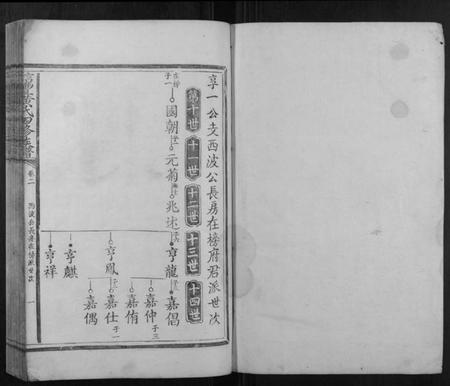 享一公支西波公長房在榜府君派世次
第十世 十一世 十二世 十三世 十四世
在榜子一 國朝 元菊 兆述 亨龍 嘉倡
嘉仲 子三
嘉侑
亨鳳 嘉仕 子一
嘉偶
亨麒
亨祥
卷二
西波公長房在榜派世次
一